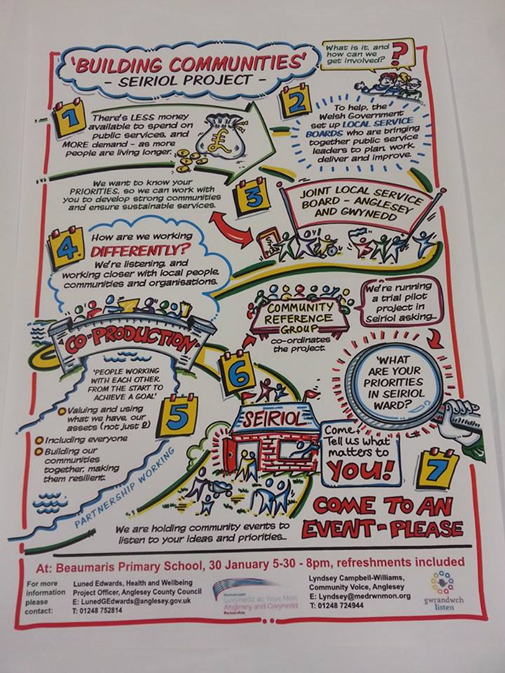 'BUILDING COMMUNITIES'
- SEIRIOL PROJECT -
What is it, and
how can we
get involved?
?
1
There's LESS money
available to spend on
public services, and
MORE demand - as more
people are living longer.
£
2
To help, the
Welsh Government
set up LOCAL SERVICE
BOARDS who are bringing
together public service
leaders to plan, work,
deliver and improve.
We want to know your
PRIORITIES, so we can work with
you to develop strong communities
and ensure sustainable services.
3
JOINT LOCAL SERVICE
BOARD - ANGLESEY
AND GWYNEDD
4
How are we working
DIFFERENTLY?
We're listening, and
working closer with local people,
communities and organisations.
CO-PRODUCTION
'PEOPLE WORKING
WITH EACH OTHER,
FROM THE START TO
ACHIEVE A GOAL'
Valuing and using
what we have, our
assets (not just £)
Including everyone
Building our
communities
together, making
them resilient.
PARTNERSHIP WORKING
5
COMMUNITY
REFERENCE
GROUP
co-ordinates
the project.
We're running
a trial pilot
project in
Seiriol asking...
6
'WHAT
ARE YOUR
PRIORITIES
IN SEIRIOL
WARD?'
SEIRIOL
Come,
Tell us what
matters to
YOU!
7
We are holding community events to
listen to your ideas and priorities...
COME TO AN
EVENT - PLEASE
At: Beaumaris Primary School, 30 January 5-30 - 8pm, refreshments included
For more
information
please
contact:
Luned Edwards, Health and Wellbeing
Project Officer, Anglesey County Council
E: LunedGEdwards@anglesey.gov.uk
T: 01248 752814
Gwynedd ac Ynys Môn
Anglesey and Gwynedd
Lyndsey Campbell-Williams,
Community Voice, Anglesey
E: Lyndsey@medrwnmon.org
T: 01248 724944
gwrandwch
listen